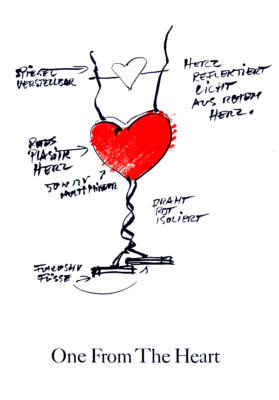 SPIEGEL
VERSTELLBAR
HERZ
REFLEKTIERT
LICHT
AUS ROTEM
HERZ.
ROTES
PLASTIK
HERZ
50W 12V
DRAHT
ROT
ISOLIERT
FÜSSE
1
One From The Heart